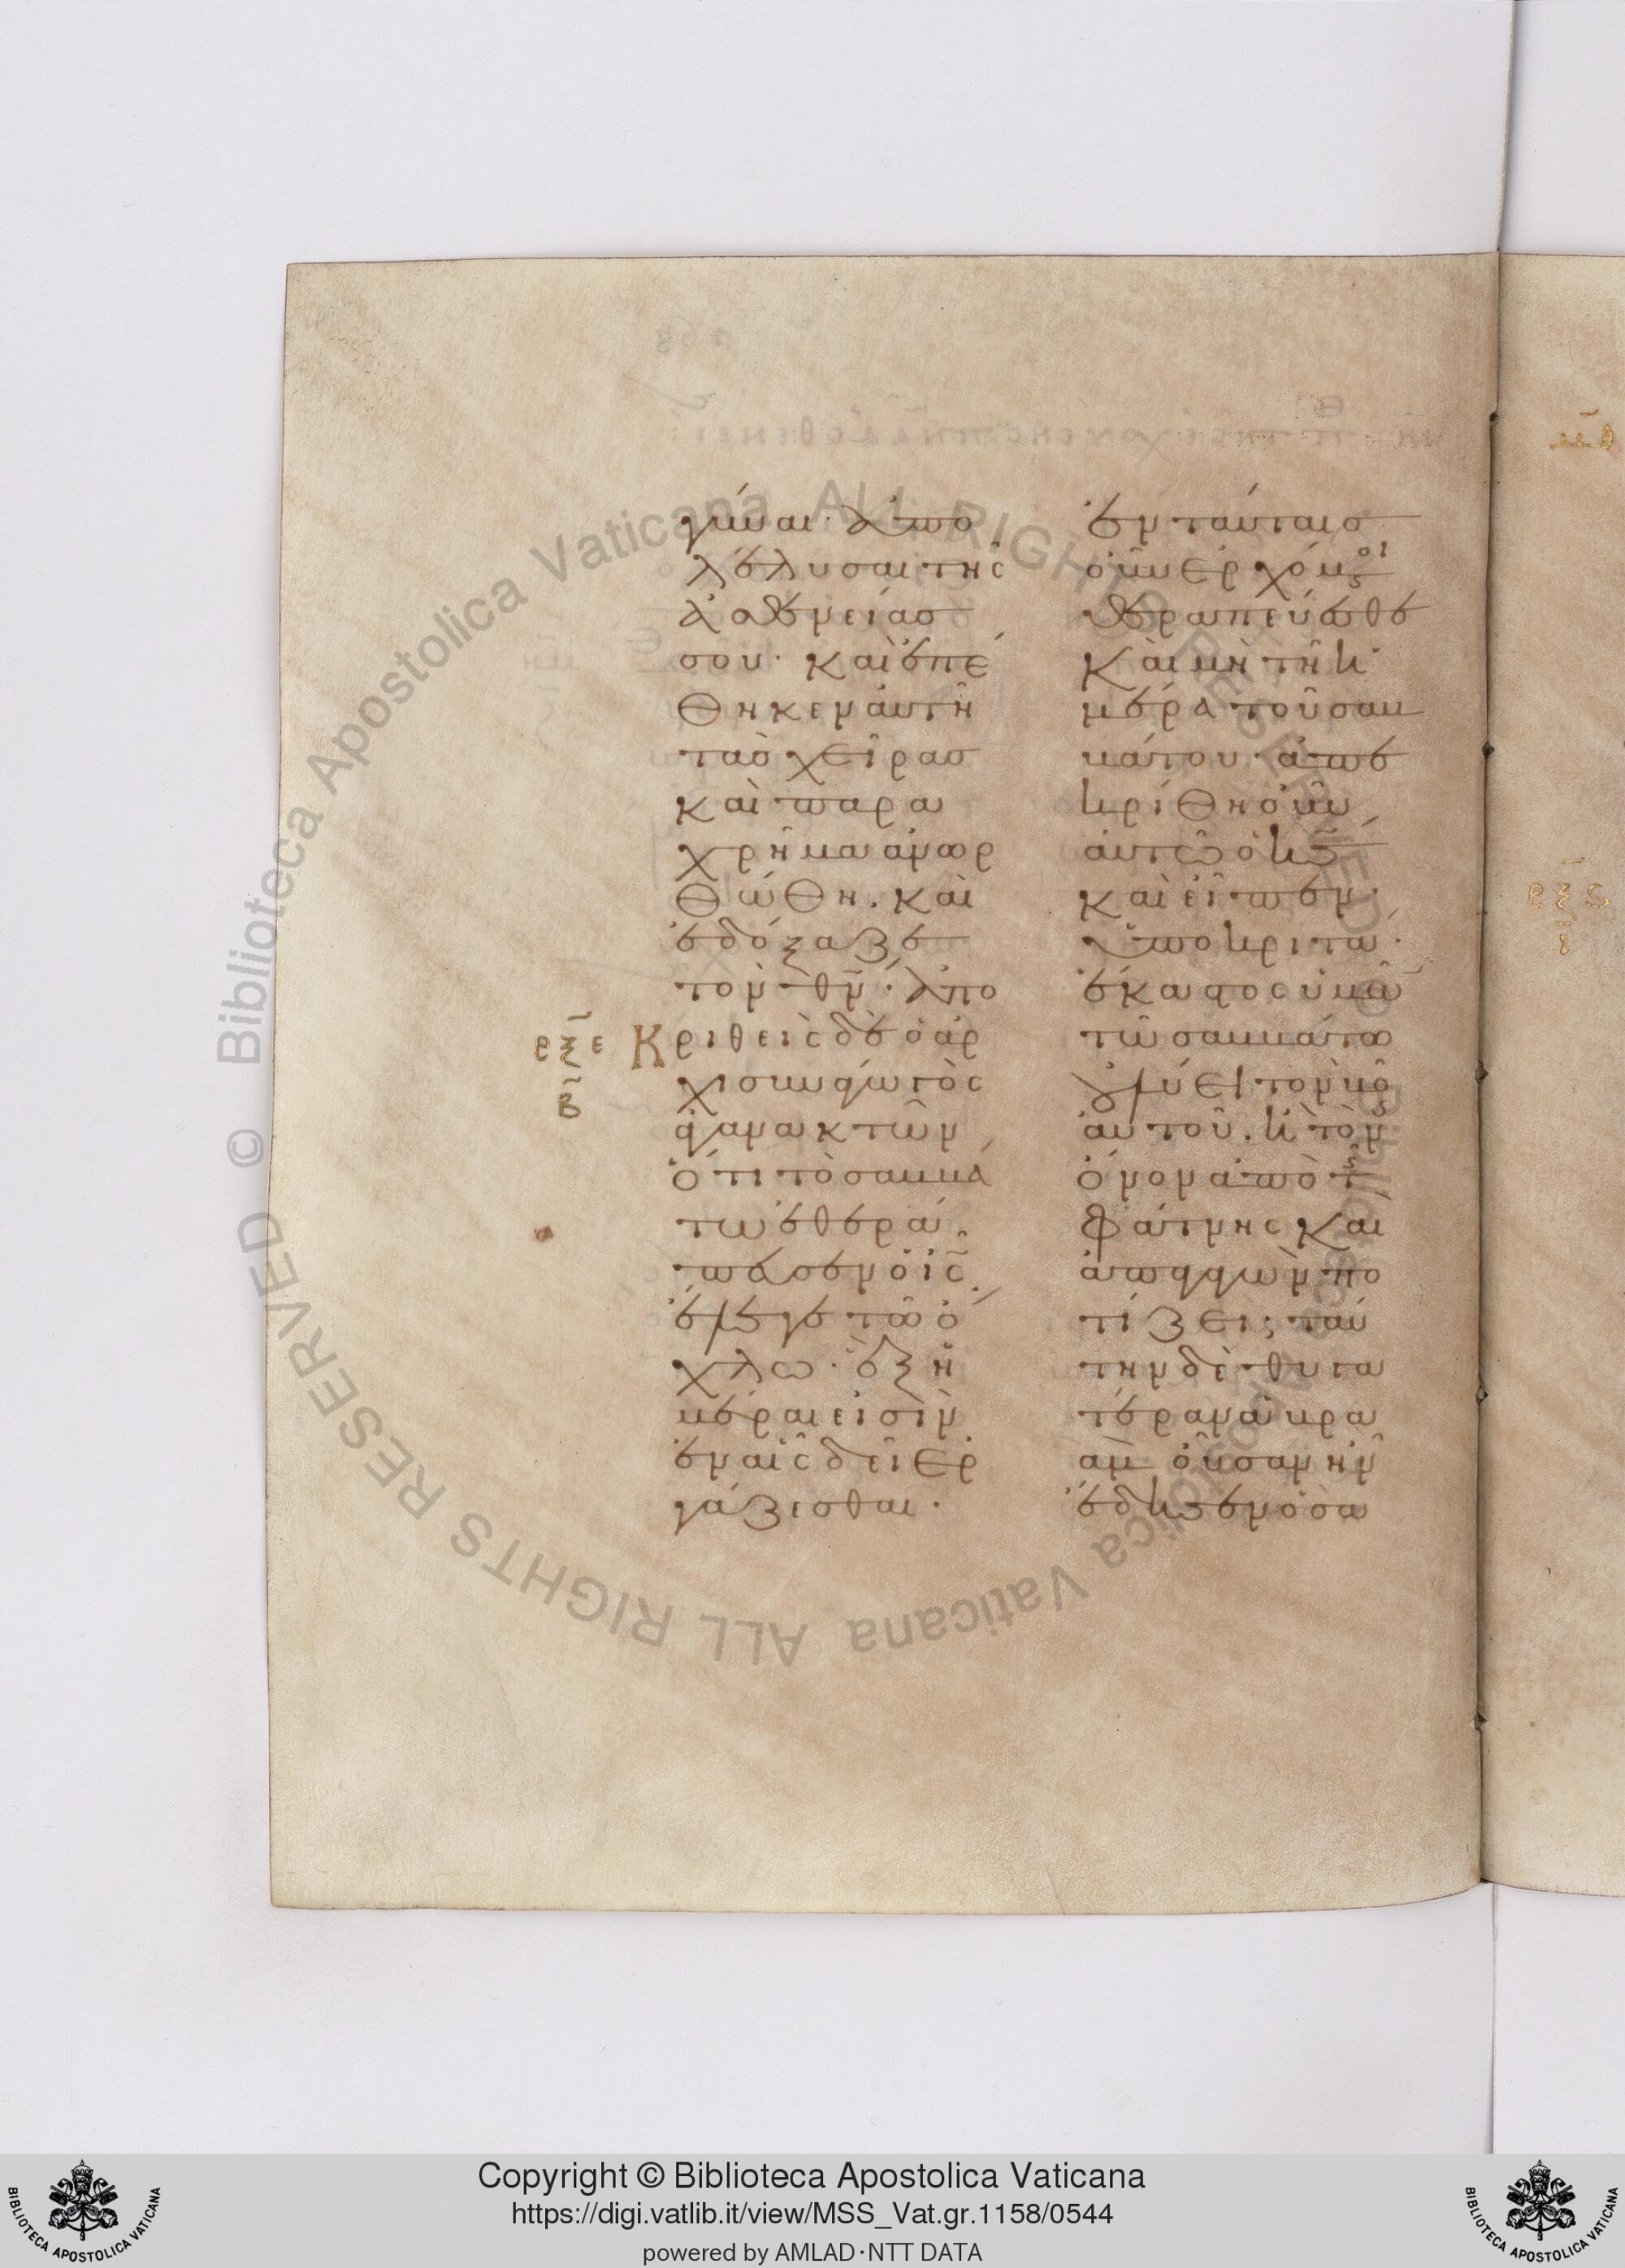 γύναι· ἀπο
λέλυσαι τῆς
ἀσθενείας
σου· καὶ ἐπέ
θηκεν αὐτῆ
τὰς χεῖρας
καὶ παρα
χρῆμα ἀνωρ
θώθη. καὶ
ἐδόξαζε
τὸν θν̄· ἀπο
ρξε Κριθεὶς δὲ ὁ ἀρ
β χισυναγωγὸς
ἀγανακτῶν
ὅτι τὸ σαββά
τω ἐθερά
πευσεν ὁ ις̄
ἔλεγε τῶ ὄ
χλω· ἓξ ἡ
μέραι εἰσὶν
ἐν αἷς δεῖ ἐρ
γάζεσθαι·
ἐν ταύταις
οὖν ἐρχόμενοι
θεραπεύεσθε
καὶ μὴ τῆ ἡ
μέρα τοῦ σαβ
βάτου· ἀπε
κρίθη οὖν
αὐτῶ ὁ κς̄
καὶ εἶπεν·
ὑποκριτα·
ἕκαστος ὑμῶν
τῶ σαββάτω
οὐ λύει τὸν βοῦν
αὐτοῦ. ἢ τὸν
ὄνον ἀπὸ τῆς
φάτνης καὶ
ἀπαγαγὼν πο
τίζει; ταύ
την δὲ θυγα
τέρα ἀβρα
ὰμ οὖσαν ἣν
ἔδησεν ὁ σα
Copyright © Biblioteca Apostolica Vaticana
https://digi.vatlib.it/view/MSS_Vat.gr.1158/0544
powered by AMLAD·NTT DATA
BIBLIOTECA APOSTOLICA VATICANA
BIBLIOTECA APOSTOLICA VATICANA
© Biblioteca Apostolica Vaticana ALL RIGHTS RESERVED
© Biblioteca Apostolica Vaticana ALL RIGHTS RESERVED